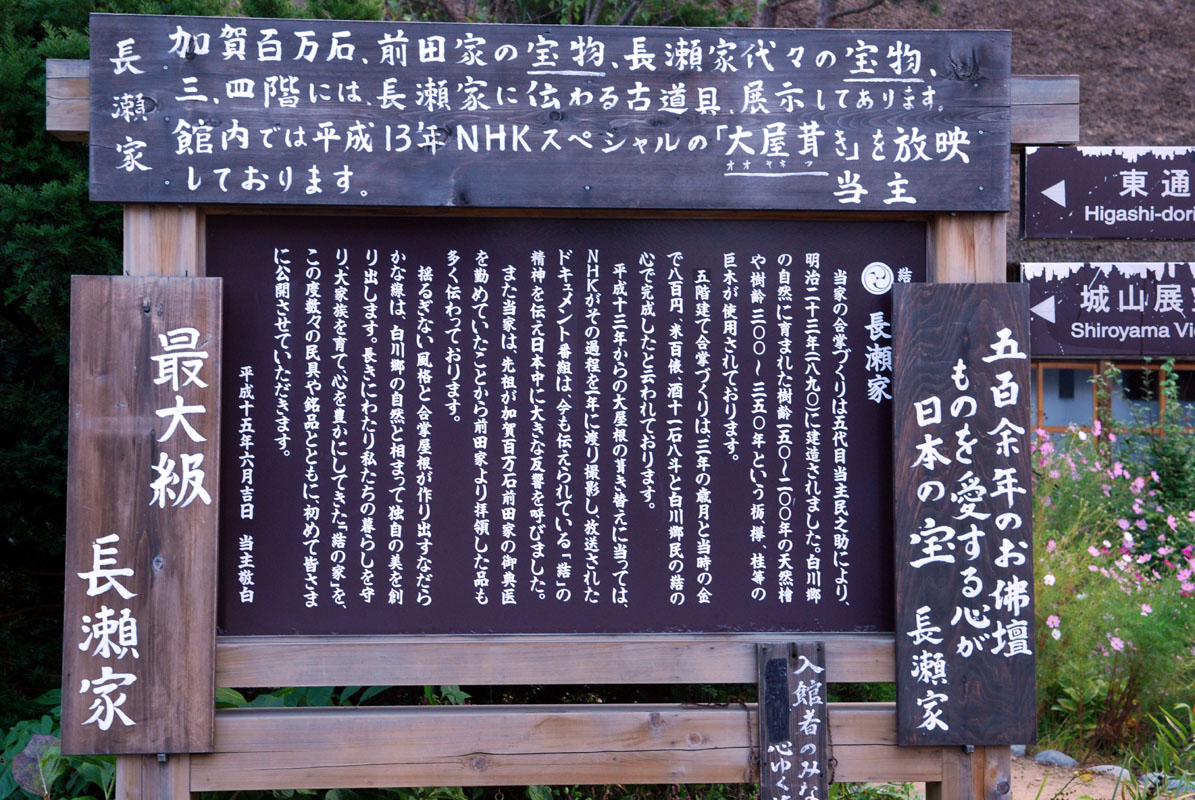 長瀬家
加賀百万石、前田家の宝物、長瀬家代々の宝物、
三、四階には、長瀬家に伝わる古道具、展示してあります。
館内では平成13年NHKスペシャルの「大屋茸き」を放映
しております。
当主
東通
Higashi-dori
城山展
Shiroyama Vi
五百余年のお佛壇
ものを愛する心が
日本の宝
長瀬家
長瀬家
当家の合掌づくりは五代目当主民之助により、
明治二十三年(一八九〇)に建造されました。白川郷
の自然に育まれた樹齢一五〇〜二〇〇年の天然檜
や樹齢三〇〇〜三五〇年という栃、欅、桂等の
巨木が使用されております。
五階建て合掌づくりは、三年の歳月と当時の金
で八百円、米百俵、酒十一石八斗と白川郷民の結の
心で完成したと云われております。
平成十三年からの大屋根の葺き替えに当っては、
NHKがその過程を一年に渡り撮影し、放送された
ドキュメント番組は、今も伝えられている「結」の
精神を伝え日本中に大きな反響を呼びました。
また当家は、先祖が加賀百万石前田家の御典医
を勤めていたことから前田家より拝領した品も
多く伝わっております。
揺るぎない風格と合掌屋根が作り出すなだら
かな線は、白川郷の自然と相まって独自の美を創
り出します。長きにわたり私たちの暮らしを守
り、大家族を育て、心を豊かにしてきた「結の家」を、
この度数々の民具や銘品とともに、初めて皆さま
に公開させていただきます。
平成十五年六月吉日 当主敬白
最大級
長瀬家
入館者のみな
心ゆく